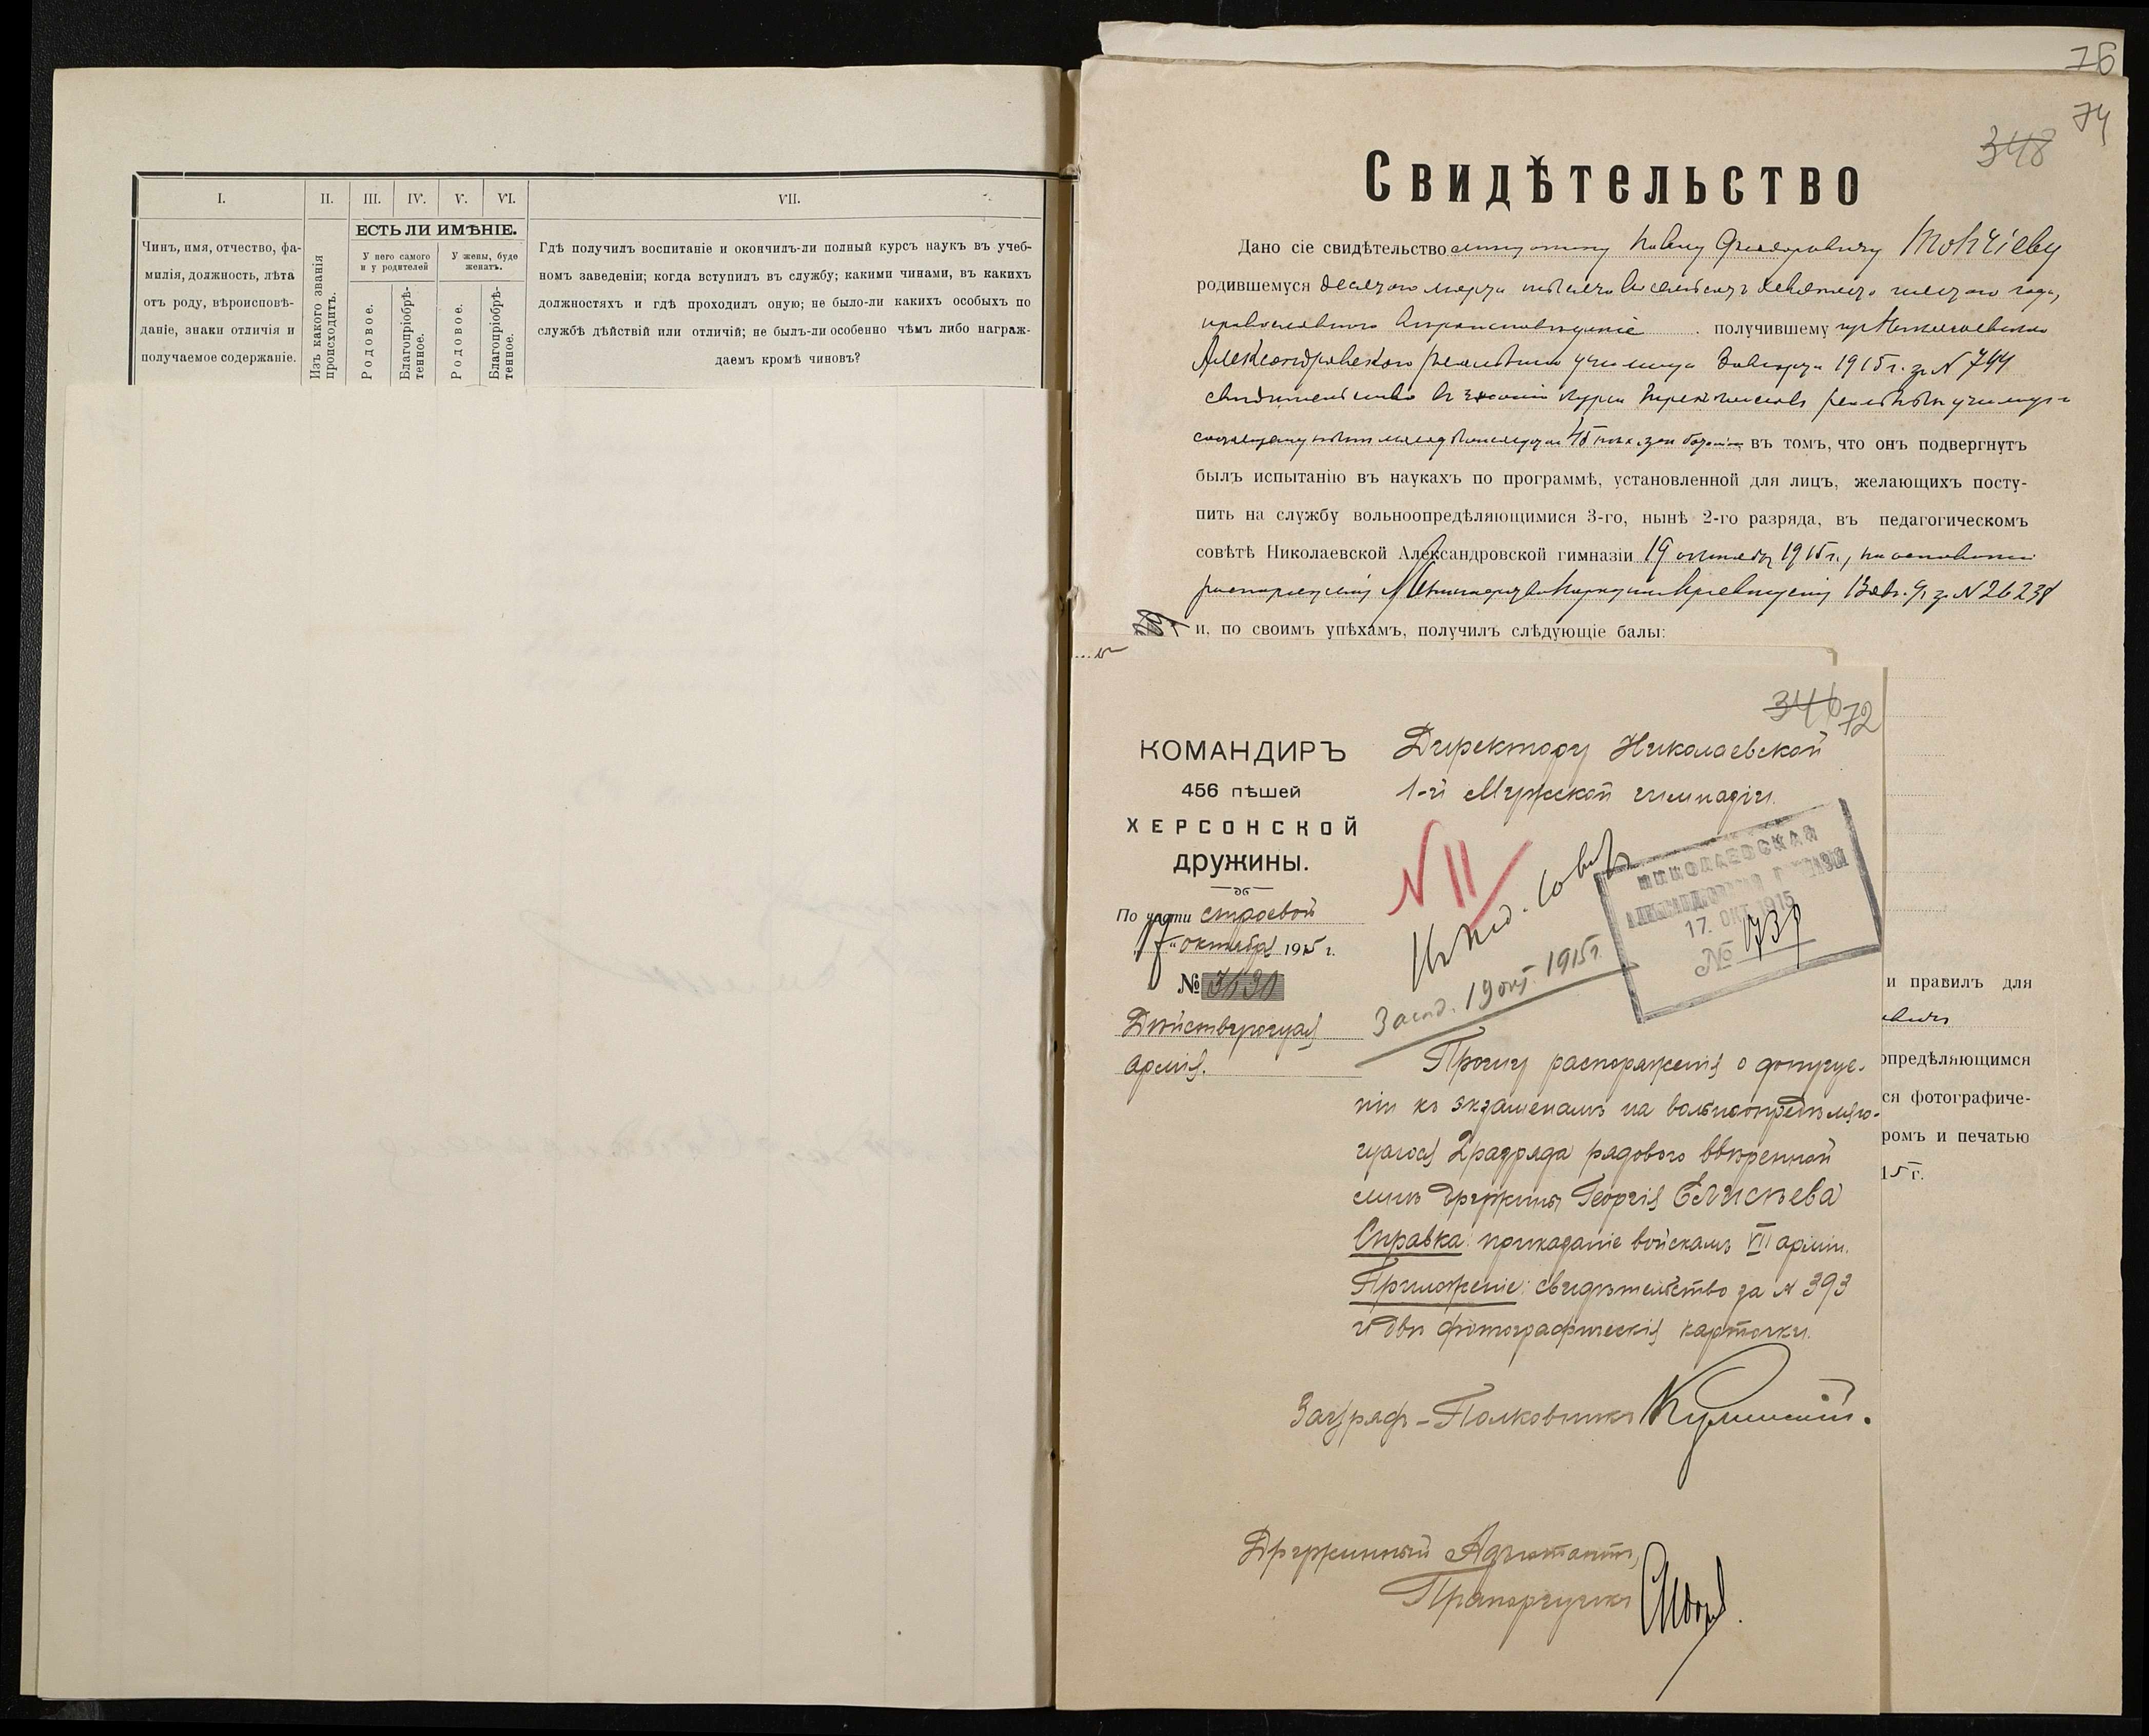 I.
II.
III.
IV.
V.
VI.
VII.
ЕСТЬ ЛИ ИМѢНІЕ.
Чинъ, имя, отчество, фа-
милія, должность, лѣта
отъ роду, вѣроисповѣ-
даніе, знаки отличія и
получаемое содержаніе.
Изъ какого званія
происходитъ.
У него самого
и у родителей
У жены, буде
женатъ.
Родовое.
Благопріобрѣ-
тенное.
Родовое.
Благопріобрѣ-
тенное.
Гдѣ получилъ воспитаніе и окончилъ-ли полный курсъ наукъ въ учеб-
номъ заведеніи; когда вступилъ въ службу; какими чинами, въ какихъ
должностяхъ и гдѣ проходилъ оную; не было-ли какихъ особыхъ по
службѣ дѣйствій или отличій; не былъ-ли особенно чѣмъ либо награж-
даемъ кромѣ чиновъ?
76
74
348
Свидѣтельство
Дано сіе свидѣтельство Павлу Федоровичу
родившемуся десятаго марта тысяча восемьсотъ года,
православнаго вѣроисповѣданіе получившему
Александровскаго реальнаго училища 1915 г. за № 744
свидѣтельство
въ томъ, что онъ подвергнутъ
былъ испытанію въ наукахъ по программѣ, установленной для лицъ, желающихъ посту-
пить на службу вольноопредѣляющимися 3-го, нынѣ 2-го разряда, въ педагогическомъ
совѣтѣ Николаевской Александровской гимназіи 19 октября 1915 г., на основаніи
№ 26238
и, по своимъ упѣхамъ, получилъ слѣдующіе балы:
346
72
КОМАНДИРЪ
456 пѣшей
ХЕРСОНСКОЙ
дружины.
По части строевой
октября 1915 г.
№
Дѣйствующая
армія.
Директору Николаевской
1-й Мужской гимназіи.
N 11
Въ пед. совѣтъ
Засѣд. 19 окт. 1915 г.
НИКОЛАЕВСКАЯ
АЛЕКСАНДРОВСКАЯ ГИМНАЗІЯ
17. ОКТ 1915
№ 1739
Прошу распоряженія о допуще-
ніи къ экзаменамъ на вольноопредѣляю-
щагося 2 разряда рядового ввѣренной
мнѣ дружины Георгія Елисѣева
Справка: приказаніе войскамъ VII арміи.
Приложеніе: свидѣтельство за № 393
и двѣ фотографическія карточки.
Полковникъ
Дружинный Адъютантъ,
Прапорщикъ
и правилъ для
опредѣляющимся
ся фотографиче-
ромъ и печатью
15 г.